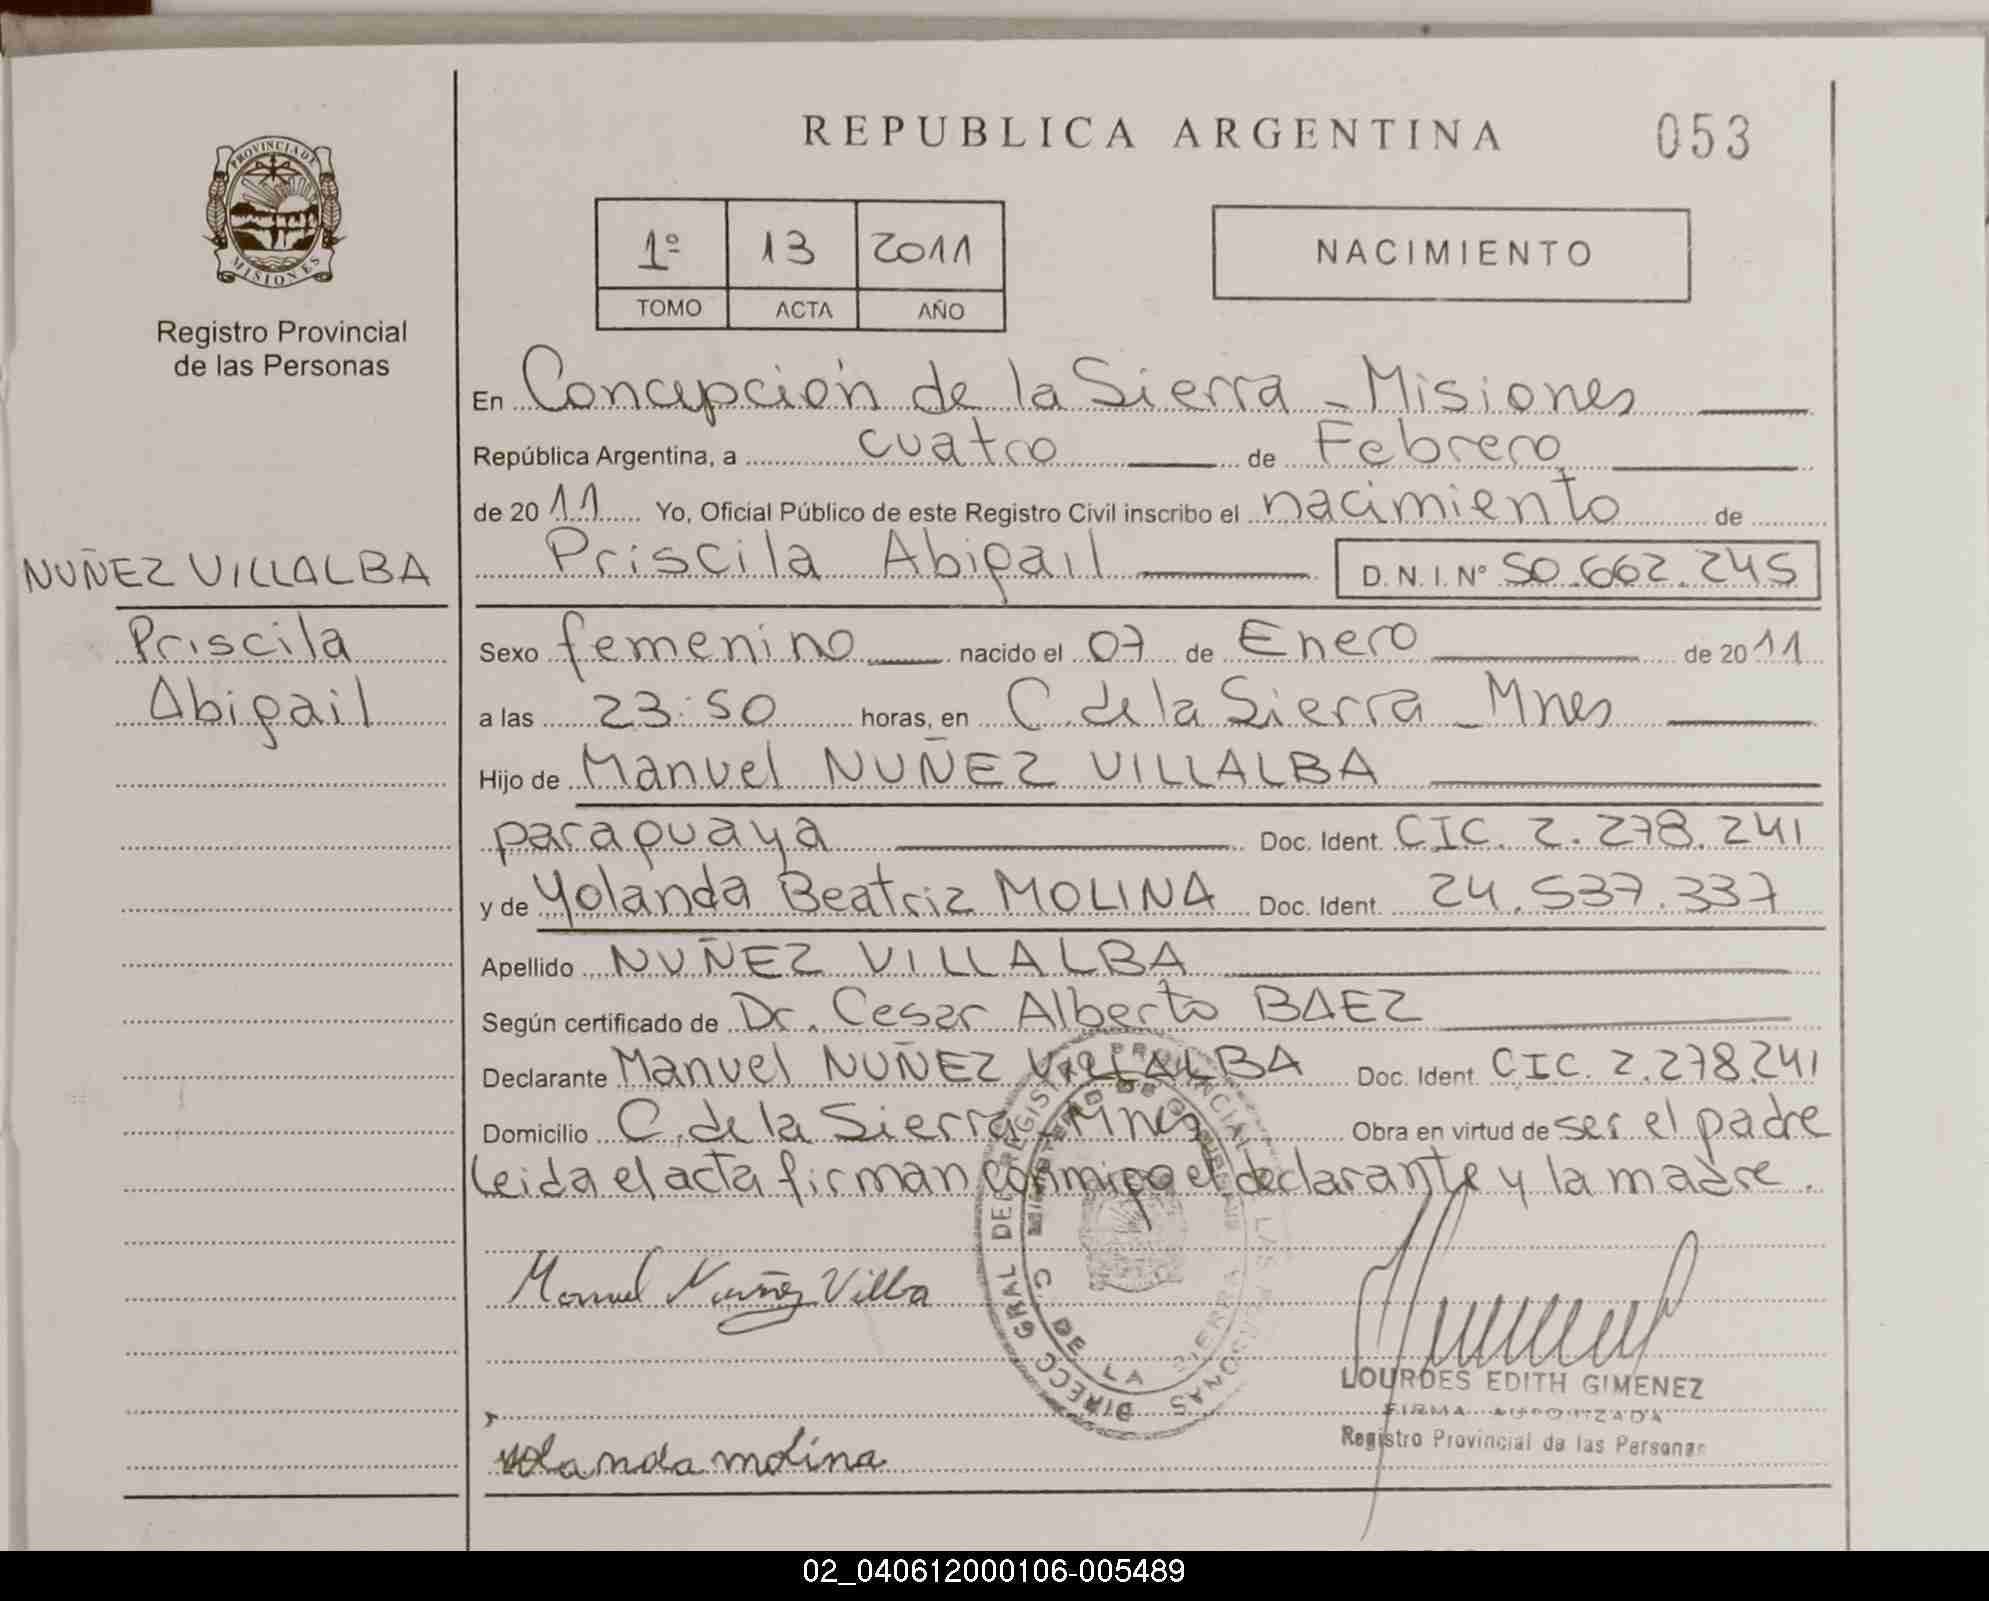 REPUBLICA ARGENTINA 053
PROVINCIA DE
MISIONES
Registro Provincial
de las Personas
1º 13 2011
TOMO ACTA AÑO
NACIMIENTO
En Concepción de la Sierra - Misiones
República Argentina, a cuatro de Febrero
de 2011 Yo, Oficial Público de este Registro Civil inscribo el nacimiento de
Priscila Abigail D.N.I. Nº 50.662.245
NUÑEZ VILLALBA
Priscila
Abigail
Sexo femenino nacido el 07 de Enero de 2011
a las 23:50 horas, en C. de la Sierra - Mnes
Hijo de Manuel NUÑEZ VILLALBA
paraguaya Doc. Ident. CIC. 2.278.241
y de Yolanda Beatriz MOLINA Doc. Ident. 24.537.337
Apellido NUÑEZ VILLALBA
Según certificado de Dr. Cesar Alberto BAEZ
Declarante Manuel NUÑEZ VILLALBA Doc. Ident. CIC. 2.278.241
Domicilio C. de la Sierra - Mnes Obra en virtud de ser el padre
Leida el acta firman conmigo el declarante y la madre.
Manuel Nuñez Villba
DIRECC GRAL DE REGISTRO PROVINCIAL DE LAS PERSONAS
MINISTERIO DE GOBIERNO
C. DE LA SIERRA
LOURDES EDITH GIMENEZ
FIRMA AUTORIZADA
Registro Provincial de las Personas
Yolanda molina
02_040612000106-005489